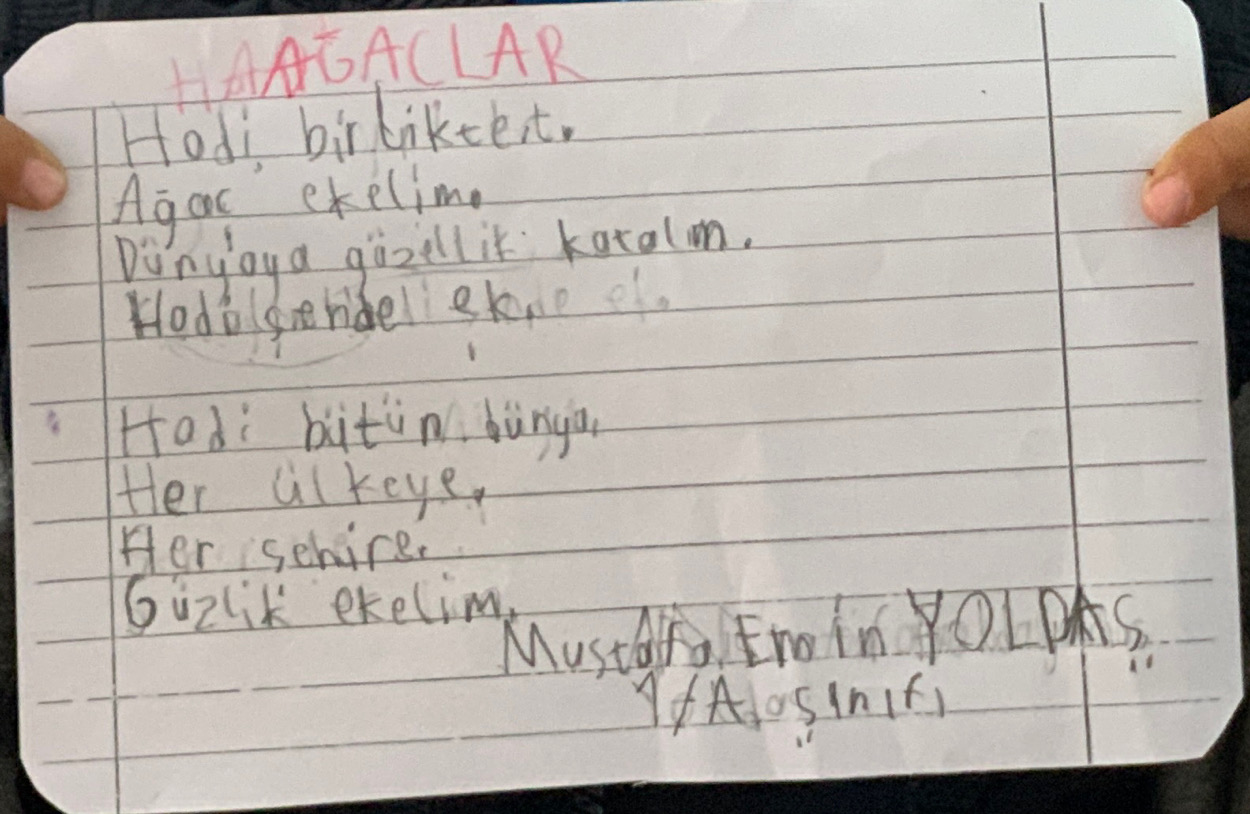 HAAĞACLAR
Hadi birlikte.
Ağac ekelim.
Dünyaya güzellik katalım.
Hadi sende ek
Hadi bütün dünya,
Her ülkeye,
Her şehire.
Güzlik ekelim.
Mustafa Emin YOLDAŞ
1/A sınıfı